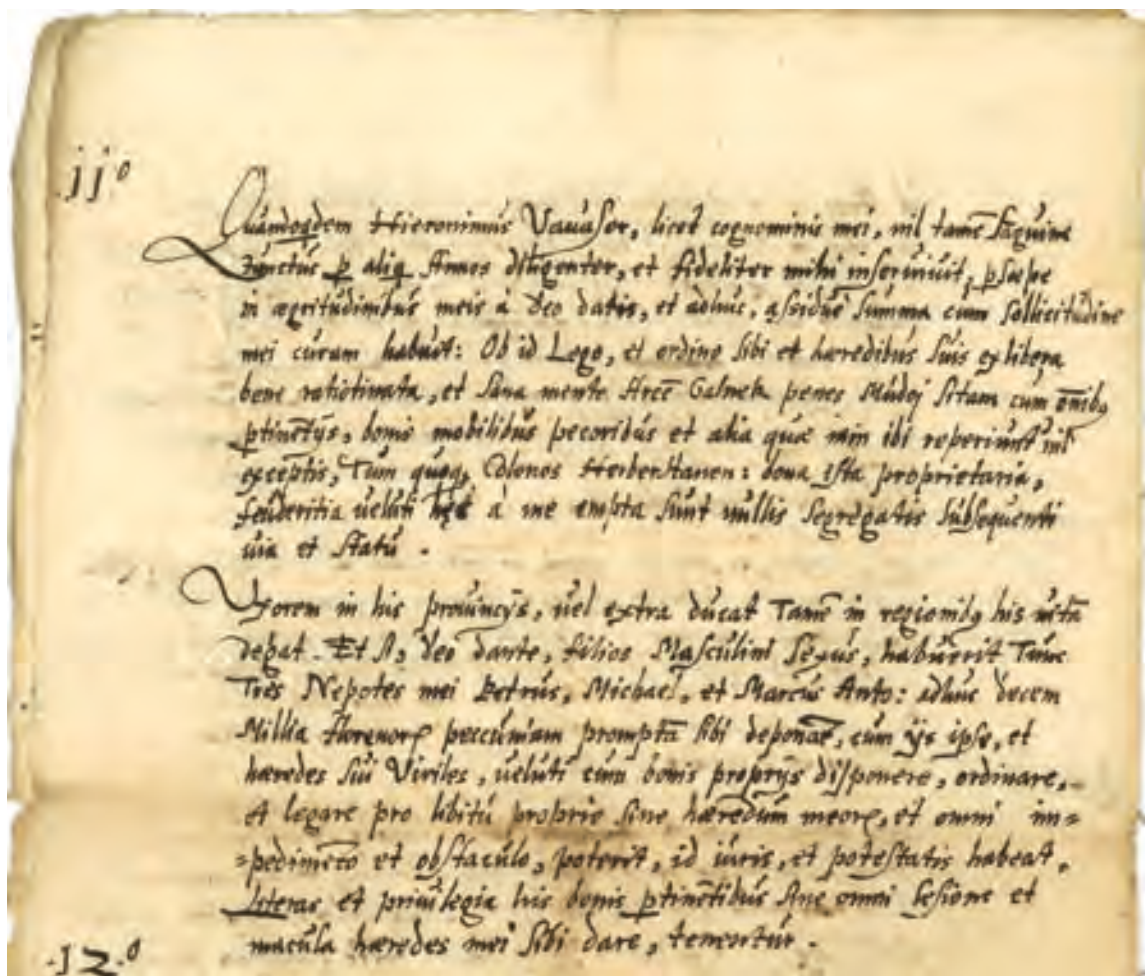 .jj.o
Quandoqdem Hieronimus Vauasor, licet cognominis mei, nil tamē sāguine
iūnctus p aliq Annos diligenter, et fideliter mihi inseruiuit, psæpe
in ægritudinibus meis à Deo datis, et adhuc, assiduè summa cum sollicitudine
mei curam habuit: Ob id Lego, et ordino sibi et hæredibus suis ex libera
bene ratiotinata, et sana mente Arcē Galnek penes sitam cum oīnibq
ptinētijs, bonis mobilibus pecoribus et alia quæ ibi reperiunt nil
exceptis, Tum quoq Colonos Herberstanen: bona ista proprietaria,
feuderitia ueluti à me empta sunt nullis segregatis subsequenti
uia et statu .
Vxorem in his prouincijs, uel extra ducat Tamē in regionibq his uitā
degat. Et A, deo dante, filios Masculini Sexus, habuerit Tunc
Tres Nepotes mei Petrus, Michael, et Marcus Anto: decem
Millia florenorƺ peccuniam promptā sibi cum ijs ipse, et
hæredes sui Viriles, ueluti cum bonis proprijs disponere, ordinare,
et legare pro libitu proprio sine hæredum meorƺ, et omni im=
=pedimēto et obstaculo, poterit, id iuris, et potestatis habeat,
Literas et priuilegia his bonis ptinētibus sine omni lesione et
macula hæredes mei sibi dare, tenentur .
.12.o